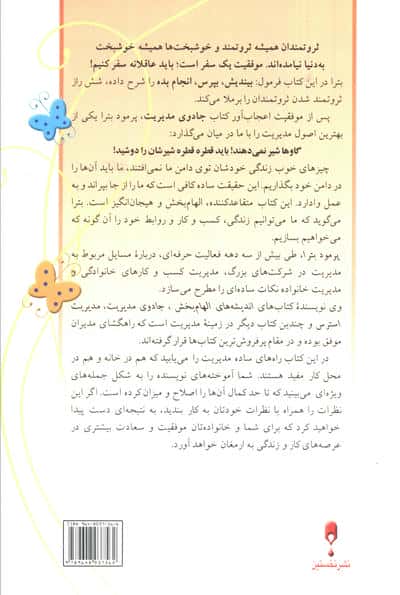 ثروتمندان همیشه ثروتمند و خوشبخت‌ها همیشه خوشبخت
به‌دنیا نیامده‌اند. موفقیت یک سفر است؛ باید عاقلانه سفر کنیم!
بترا در این کتاب فرمول: بیندیش، بپرس، انجام بده را شرح داده، شش راز
ثروتمند شدن ثروتمندان را برملا می‌کند.
پس از موفقیت اعجاب‌آور کتاب جادوی مدیریت، پرمود بترا یکی از
بهترین اصول مدیریت را با ما در میان می‌گذارد:
گاوها شیر نمی‌دهند! باید قطره قطره شیرشان را دوشید!
چیزهای خوب زندگی خودشان توی دامن ما نمی‌افتند، ما باید آن‌ها را
در دامن خود بگذاریم. این حقیقت ساده کافی است که ما را از جا بپراند و به
عمل وادارد. این کتاب متقاعدکننده، الهام‌بخش و هیجان‌انگیز است. بترا
می‌گوید که ما می‌توانیم زندگی، کسب و کار و روابط خود را آن گونه که
می‌خواهیم بسازیم.
پرمود بترا، طی بیش از سه دهه فعالیت حرفه‌ای، دربارهٔ مسایل مربوط به
مدیریت در شرکت‌های بزرگ، مدیریت کسب و کارهای خانوادگی و
مدیریت خانواده نکات ساده‌ای را مطرح می‌سازد.
وی نویسندهٔ کتاب‌های اندیشه‌های الهام‌بخش، جادوی مدیریت، مدیریت
استرس و چندین کتاب دیگر در زمینهٔ مدیریت است که راهگشای مدیران
موفق بوده و در مقام پرفروش‌ترین کتاب‌ها قرار گرفته‌اند.
در این کتاب راه‌های ساده مدیریت را می‌یابید که هم در خانه و هم در
محل کار مفید هستند. شما آموخته‌های نویسنده را به شکل جمله‌های
ویژه‌ای می‌بینید که تا حد کمال آن‌ها را اصلاح و میزان کرده است. اگر این
نظرات را همراه با نظرات خودتان به کار ببندید، به نتیجه‌ای دست پیدا
خواهید کرد که برای شما و خانواده‌تان موفقیت و سعادت بیشتری در
عرصه‌های کار و زندگی به ارمغان خواهد آورد.
نشر نخستین